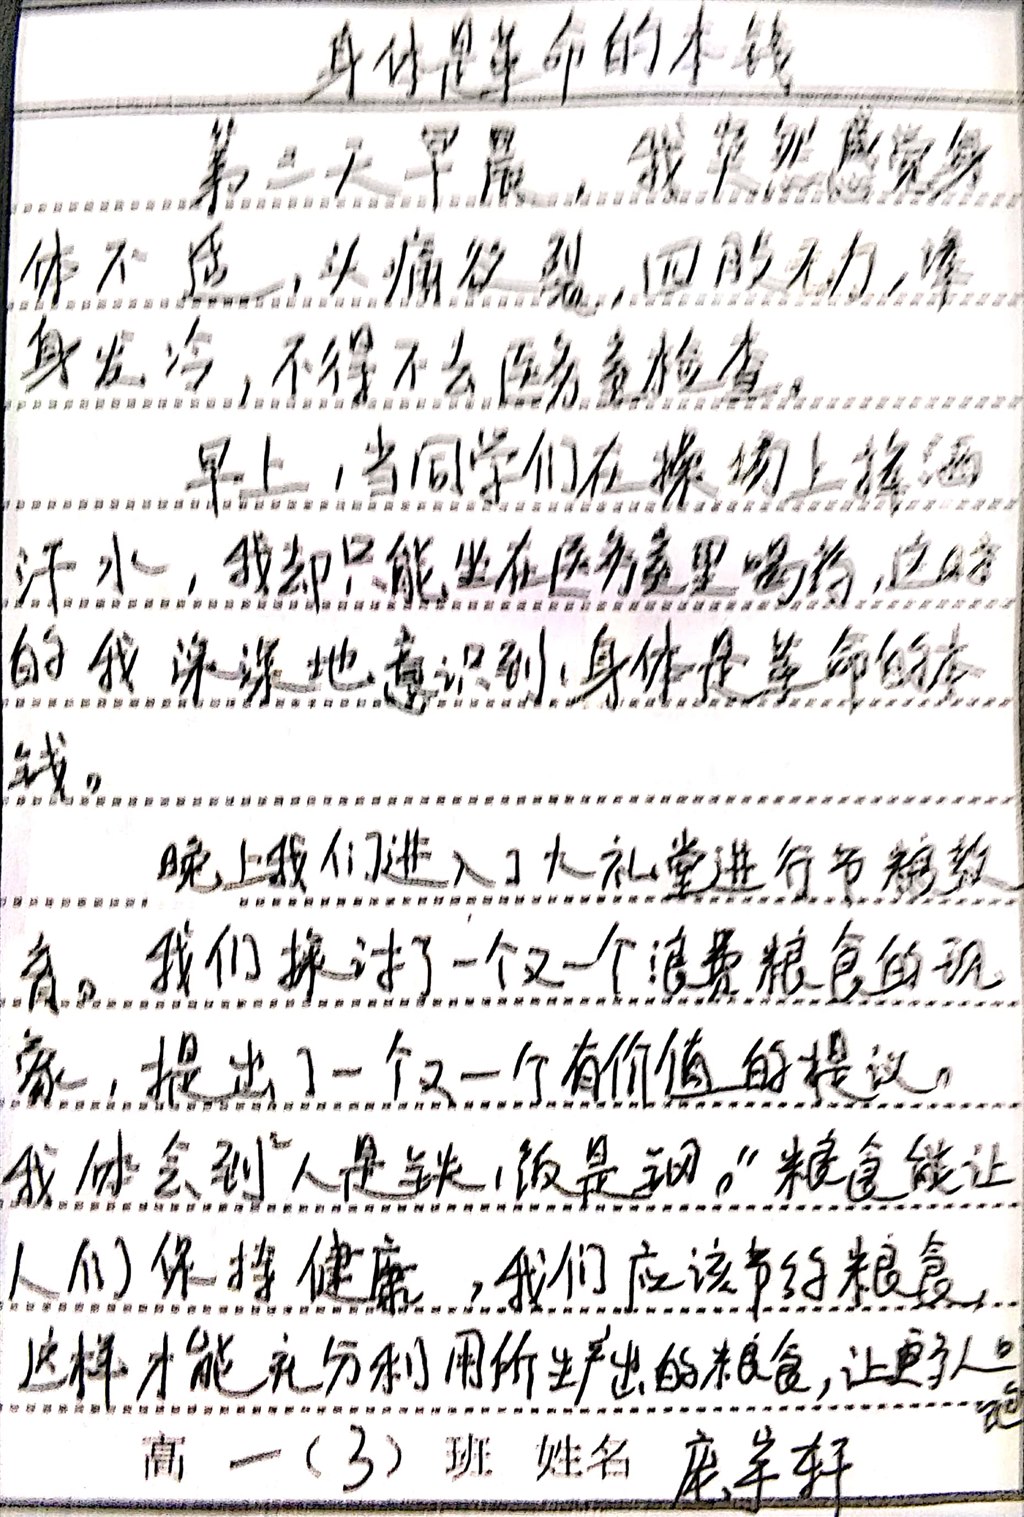 身体是革命的本钱
第二天早晨，我突然感觉身
体不适，头痛欲裂，四肢无力，浑
身发冷，不得不去医务室检查。
早上，当同学们在操场上挥洒
汗水，我却只能坐在医务室里喝药，这时
的我深深地意识到，身体是革命的本
钱。
晚上我们进入了大礼堂进行节粮教
育。我们探讨了一个又一个浪费粮食的现
象，提出了一个又一个有价值的提议。
我体会到“人是铁，饭是钢。”粮食能让
人们保持健康，我们应该节约粮食，
这样才能充分利用所生产出的粮食，让更多人吃
饱。
高一（3）班 姓名 轩